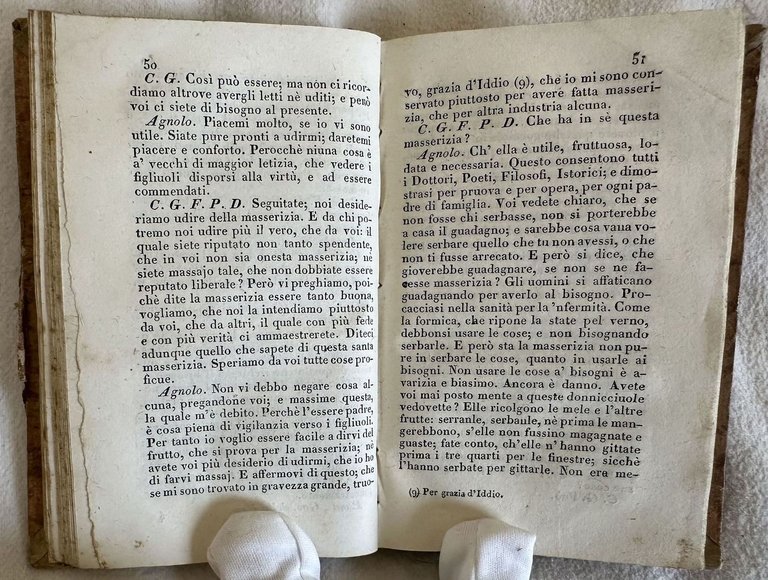 50
C. G. Così può essere; ma non ci ricor-
diamo altrove avergli letti nè uditi; e però
voi ci siete di bisogno al presente.
Agnolo. Piacemi molto, se io vi sono
utile. Siate pure pronti a udirmi; daretemi
piacere e conforto. Perocchè niuna cosa è
a' vecchi di maggior letizia, che vedere i
figliuoli disporsi alla virtù, e ad essere
commendati.
C. G. F. P. D. Seguitate; noi deside-
riamo udire della masserizia. E da chi po-
tremo noi udire più il vero, che da voi: il
quale siete riputato non tanto spendente,
che in voi non sia onesta masserizia; nè
siete massajo tale, che non dobbiate essere
reputato liberale? Però vi preghiamo, poi-
chè dite la masserizia essere tanto buona,
vogliamo, che noi la intendiamo piuttosto
da voi, che da altri, il quale con più fede
e con più verità ci ammaestrerete. Diteci
adunque quello che sapete di questa santa
masserizia. Speriamo da voi tutte cose pro-
ficue.
Agnolo. Non vi debbo negare cosa al-
cuna, pregandone voi; e massime questa,
la quale m'è debito. Perchè l'essere padre,
è cosa piena di vigilanzia verso i figliuoli.
Per tanto io voglio essere facile a dirvi del
frutto, che si prova per la masserizia; nè
avete voi più desiderio di udirmi, che io ho
di farvi massaj. E affermovi di questo; che
se mi sono trovato in gravezza grande, truo-
51
vo, grazia d'Iddio (9), che io mi sono con-
servato piuttosto per avere fatta masseri-
zia, che per altra industria alcuna.
C. G. F. P. D. Che ha in sè questa
masserizia?
Agnolo. Ch' ella è utile, fruttuosa, lo-
data e necessaria. Questo consentono tutti
i Dottori, Poeti, Filosofi, Istorici; e dimo-
strasi per pruova e per opera, per ogni pa-
dre di famiglia. Voi vedete chiaro, che se
non fosse chi serbasse, non si porterebbe
a casa il guadagno; e sarebbe cosa vana vo-
lere serbare quello che tu non avessi, o che
non ti fusse arrecato. E però si dice, che
gioverebbe guadagnare, se non se ne fa-
cesse masserizia? Gli uomini si affaticano
guadagnando per averlo al bisogno. Pro-
cacciasi nella sanità per la 'nfermità. Come
la formica, che ripone la state pel verno,
debbonsi usare le cose; e non bisognando
serbarle. E però sta la masserizia non pu-
re in serbare le cose, quanto in usarle ai
bisogni. Non usare le cose a' bisogni è a-
varizia e biasimo. Ancora è danno. Avete
voi mai posto mente a queste donnicciuole
vedovette? Elle ricolgono le mele e l'altre
frutte: serranle, serbaule, nè prima le man-
gerebbono, s'elle non fussino magagnate e
guaste; fate conto, ch'elle n' hanno gittate
prima i tre quarti per le finestre; sicchè
l'hanno serbate per gittarle. Non era me-
(9) Per grazia d'Iddio.